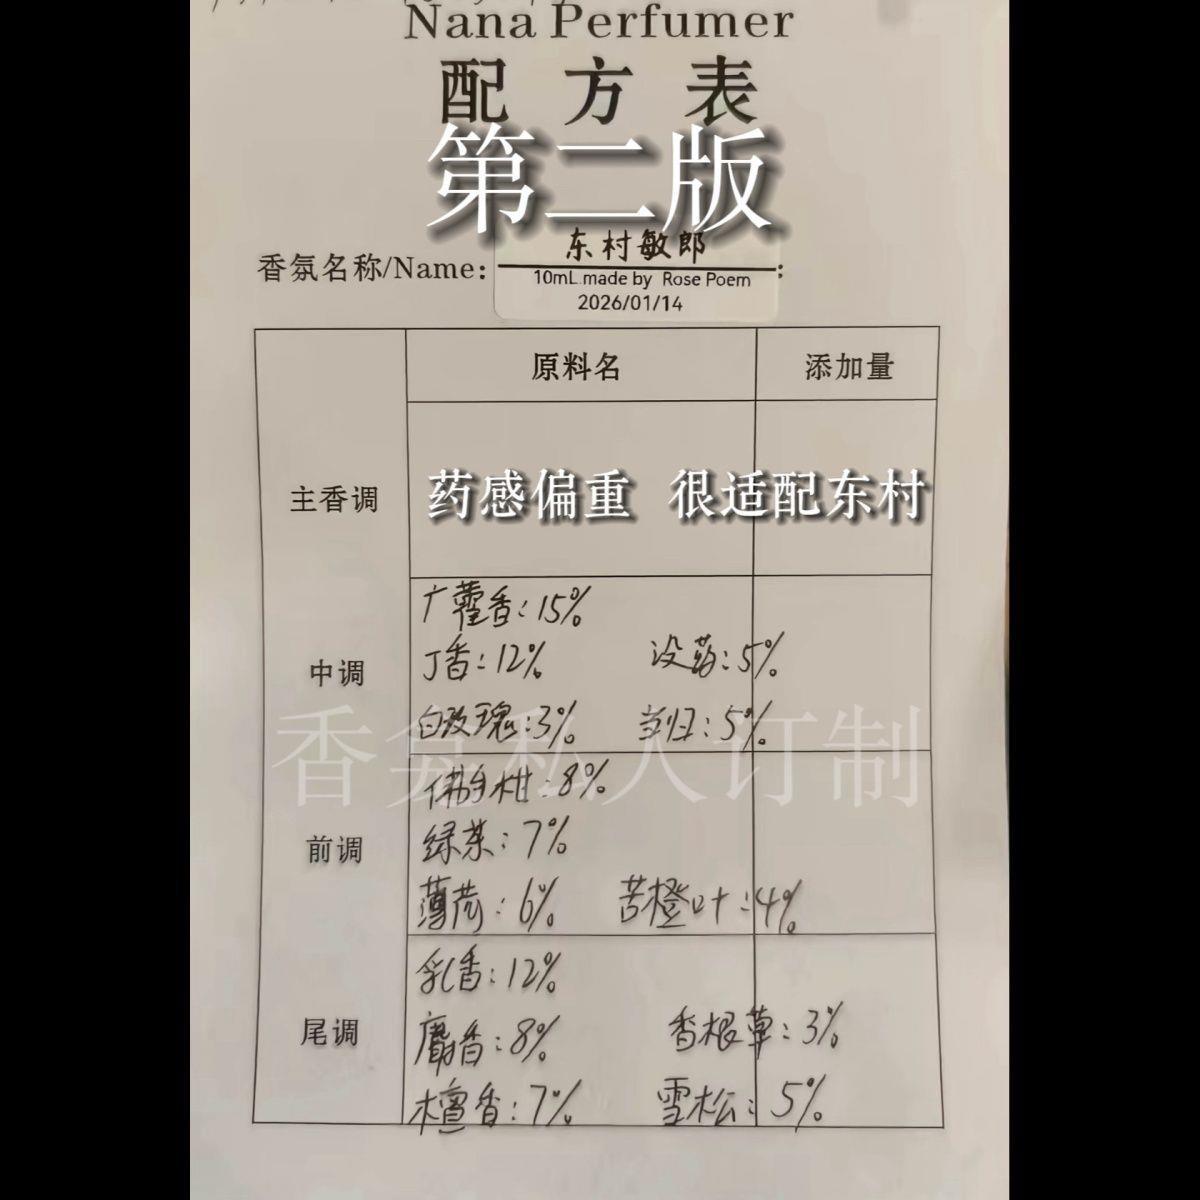 Nana Perfumer
配方表
第二版
东村敏郎
香氛名称/Name:
10mL made by Rose Poem
2026/01/14
原料名 添加量
主香调
药感偏重 很适配东村
广藿香:15%
丁香:12% 没药:5%
中调
白玫瑰:3% 当归:5%
香氛私人订制
佛手柑:8%
绿茶:7%
前调
薄荷:6% 苦橙叶:4%
乳香:12%
尾调
麝香:8% 香根草:3%
檀香:7% 雪松:5%